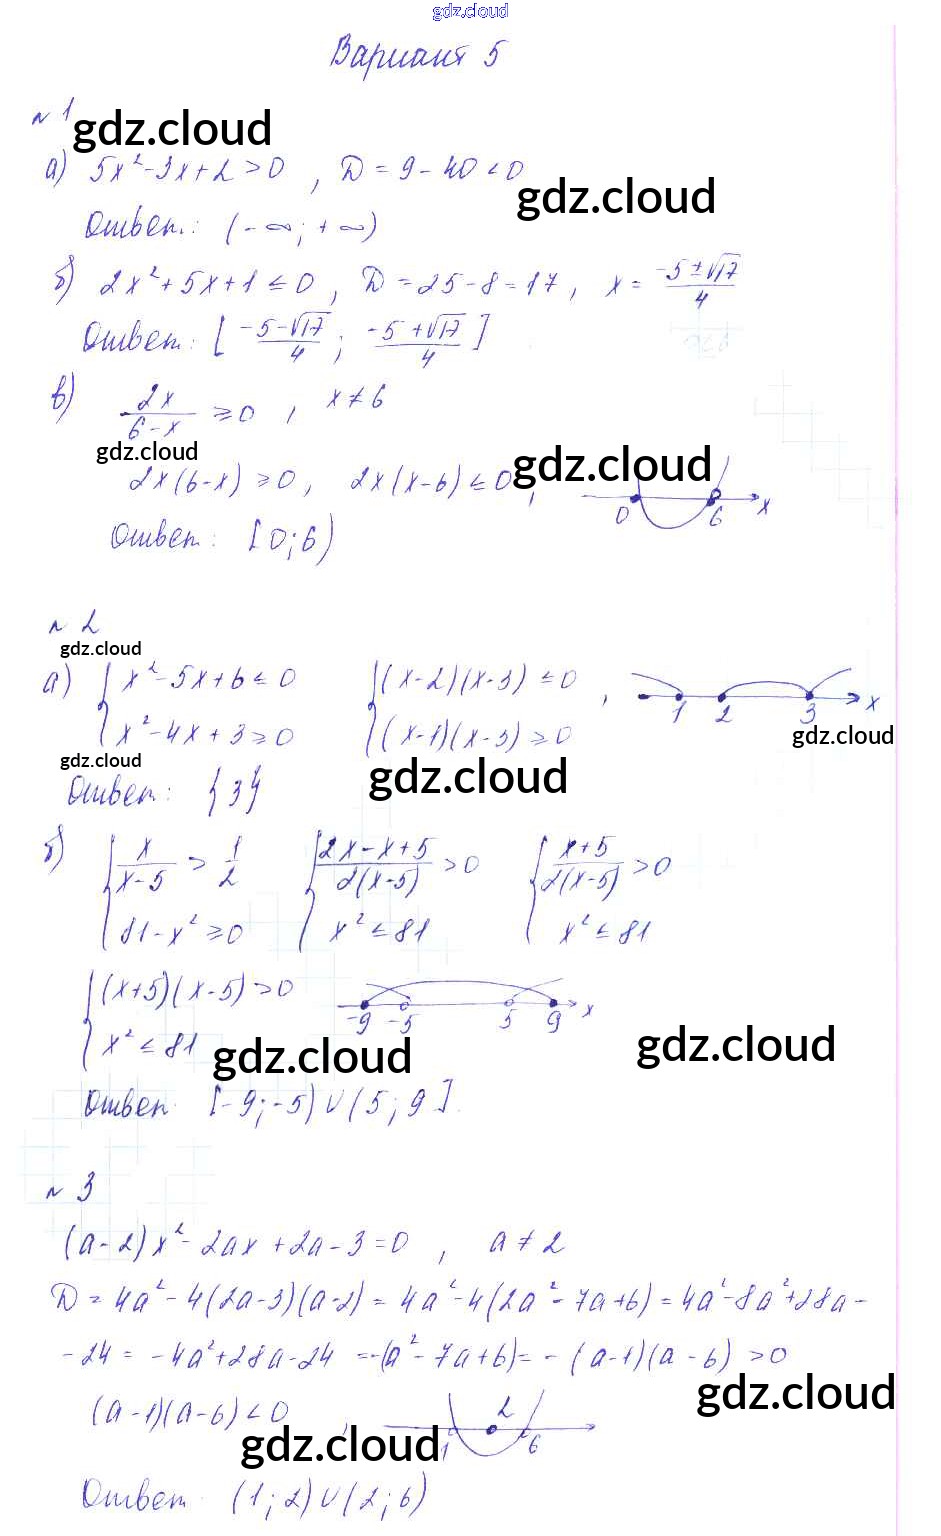 gdz.cloud
Вариант 5
№ 1
gdz.cloud
а) 5x² - 3x + 2 > 0 , D = 9 - 40 < 0
gdz.cloud
Ответ: (-∞; +∞)
б) 2x² + 5x + 1 ≤ 0 , D = 25 - 8 = 17 , x = (-5 ± √17)/4
Ответ: [(-5 - √17)/4 ; (-5 + √17)/4]
в) 2x/(6 - x) ≥ 0 , x ≠ 6
gdz.cloud
gdz.cloud
2x(6 - x) ≥ 0 , 2x(x - 6) ≤ 0 ,
0 6 x
Ответ: [0; 6)
№ 2
gdz.cloud
а) { x² - 5x + 6 ≤ 0 { (x - 2)(x - 3) ≤ 0 ,
x² - 4x + 3 ≥ 0 (x - 1)(x - 3) ≥ 0
1 2 3 x
gdz.cloud
gdz.cloud
gdz.cloud
Ответ: {3}
б) { x/(x - 5) > 1/2 { (2x - x + 5)/(2(x - 5)) > 0 { (x + 5)/(2(x - 5)) > 0
81 - x² ≥ 0 x² ≤ 81 x² ≤ 81
{ (x + 5)(x - 5) > 0
x² ≤ 81
-9 -5 5 9 x
gdz.cloud
gdz.cloud
Ответ: [-9; -5) ∪ (5; 9].
№ 3
(a - 2)x² - 2ax + 2a - 3 = 0 , a ≠ 2
D = 4a² - 4(2a - 3)(a - 2) = 4a² - 4(2a² - 7a + 6) = 4a² - 8a² + 28a -
- 24 = -4a² + 28a - 24 = -(a² - 7a + 6) = -(a - 1)(a - 6) > 0
gdz.cloud
(a - 1)(a - 6) < 0 ,
1 2 6
gdz.cloud
Ответ: (1; 2) ∪ (2; 6)